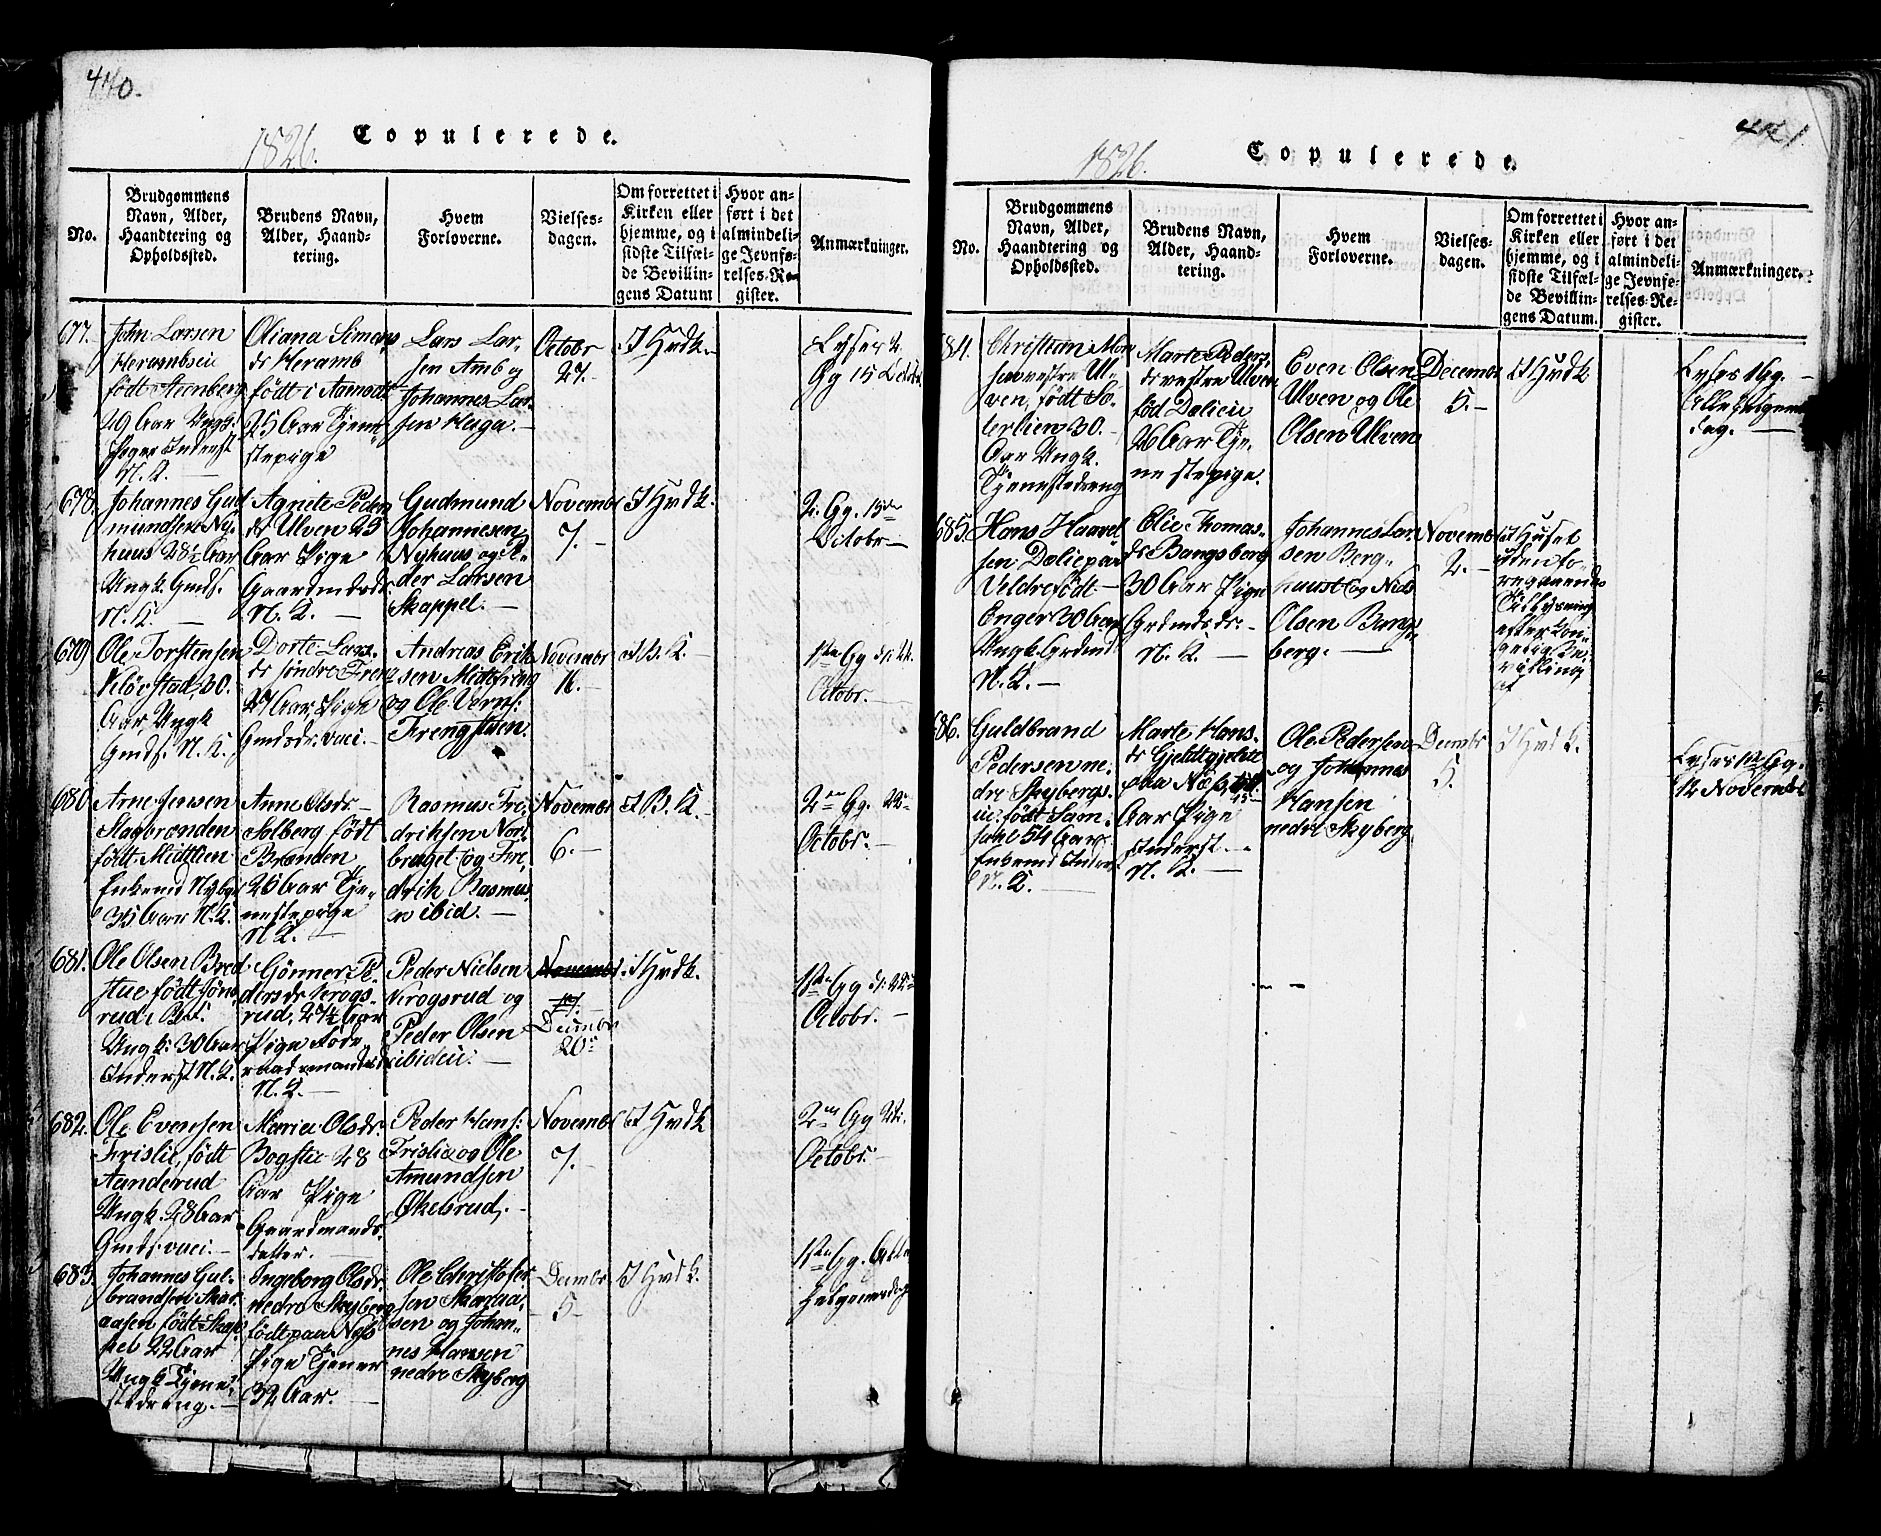 440.
1826. Copulerede.
No.
Brudgommens
Navn, Alder,
Haandtering og
Opholdssted.
Brudens Navn,
Alder, Haand-
tering.
Hvem
Forloverne.
Vielses-
dagen.
Om forrettet i
Kirken eller
hjemme, og i
sidste Tilfæl-
de Bevillin-
gens Datum
Hvor an-
ført i det
almindeli-
ge Jevnfø-
relses-Re-
gister.
Anmærkninger.
677.
John Larsen
født
29 Aar Ungk.
N. K.
Oliana Simens
dr Heramb
født i
25 Aar Tjene
stepige
Lars Lar-
sen Amb og
Johannes Lar-
sen Hauga.
Octobr
27.
I Hvdk.
Gg 15 Octobr
678.
Johannes Gud
mundsen Ny-
huus 28½ Aar
Ungk. Gmds.
N. K.
Agnete Peders
dr Ulven 25
Aar Pige
Gaardmdsdr
N. K.
Gudmund
Johannesen
Nyhuus og Pe-
der Larsen
Skappel.
Novembr
7.
I Hvdk.
2. Gg. 15de
Octobr
679
Ole Torstensen
30.
Aar Ungk
Gmds. N. K.
Dorte Lars-
dr søndre
27 Aar, Pige
Gmdsdr.
Andreas Erik
sen
og Ole
Novembr
16.
I B. K.
1ste Gg d. 22.
Octobr.
680
Arne Jensen
Slagbrænden
født Midtlien
Enkemd
35 Aar N. K.
Anne Olsdr
Solberg født
Brænden
26 Aar Tje-
nestepige
N K.
Rasmus Fre-
driksen Nor-
braget og Fre-
drik Rasmus
ibid.
Novembr
6.
I B. K.
2den Gg. 22
Octobr.
681.
Ole Olsen Bred
stue født
rud i
Ungk. 30 Aar
Inderst N. K.
Gønner Pe-
dersdr Krogs-
rud, 27¼ Aar
Pige Føde-
raadsmandsdr
N. K.
Peder Nielsen
Krogsrud og
Peder Olsen
ibidem.
Novembr
17.
Decembr
20
I Hvdk.
1ste Gg d. 22
Octobr.
682.
Ole Evensen
Frislie, født
Aanderud
Ungk. 28 Aar
Gmds.
Maria Olsdr.
Bogstie 28
Aar Pige
Gaardmands-
datter.
Peder Hans.
Frislie og Ole
Amundsen
Økelsrud.
Novembr
7.
I Hvdk
2den Gg 22.
Octobr.
683.
Johannes Gul-
brandsen Skar-
aasen født Skap-
pel 22 Aar
Ungk Tjene-
stedreng.
Ingeborg Olsdr.
nedre Skyberg
født paa Næs
Pige Tjener
32 Aar.
Ole Christofer
sen Skaraa-
sen og Johan-
nes Hansen
nedre Skyberg
Decembr
5
I Hvdk.
1ste Gg. Alle
helgensdag
441.
1826. Copulerede.
No.
Brudgommens
Navn, Alder,
Haandtering og
Opholdssted.
Brudens Navn,
Alder, Haand-
tering.
Hvem
Forloverne.
Vielses-
dagen.
Om forrettet i
Kirken eller
hjemme, og i
sidste Tilfæl-
de Bevillin-
gens Datum.
Hvor an-
ført i det
almindeli-
ge Jevnfø-
relses-Re-
gister.
Anmærkninger.
684.
Christian Mon
sen vestre Ul-
ven, født Sæ-
terlien 30.
Aar Ungk.
Tjenestedreng
Marte Peders-
dr vestre Ulven
fød Dælien
26 Aar Tje-
nestepige.
Even Olsen
Ulven og Ole
Olsen Ulven
Decembr
5.
I Hvdk
Lyses 1 Gg.
Alle helgens
dag.
685.
Hans Haavel
sen Dælie paa
Veldre født
Enger 30 Aar
Ungk Grdmd
N. K.
Elie Thomas-
dr Bangsberg
30 Aar Pige
Grdmdsdr.
N. K.
Johannes Lar-
sen Berg-
haust og Niels
Olsen Bangs-
berg.
Novembr
2.
I Huset
uden fo-
regaaende
Tillysning
efter kon-
gelig Be-
villing
af
686.
Guldbrand
Pedersen ne-
dre Skybergs-
eie. født Sam-
54 Aar
Enkemd Inderst
N. K.
Marte Hans-
dr
paa Næs,
Aar Pige
Inderst.
N. K.
Ole Pedersen
og Johannes
Hansen
nedre Skyberg
Decembr
5.
I Hvdk.
Lyses 1ste Gg.
12 Novembr